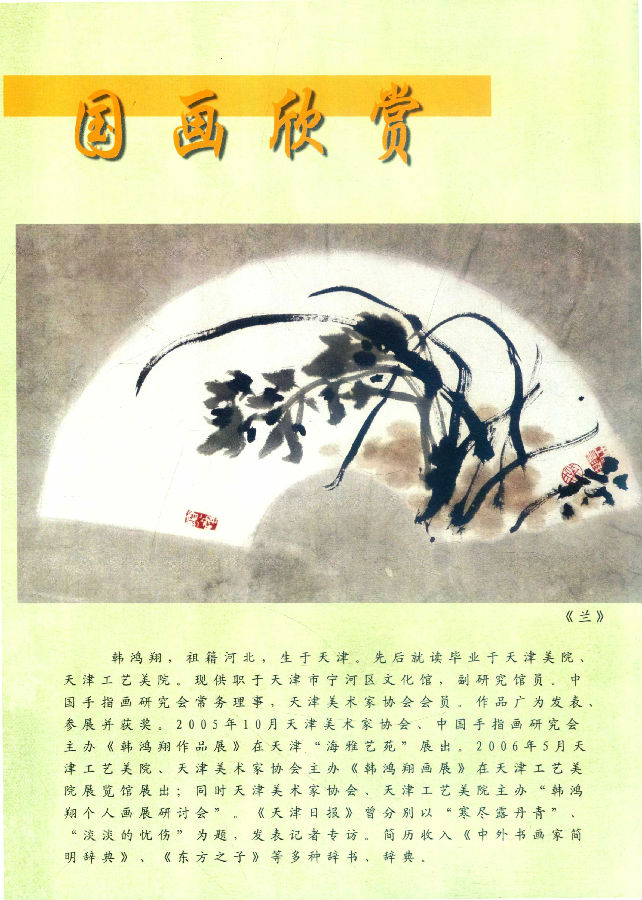 国画欣赏
《兰》
韩鸿翔，祖籍河北，生于天津。先后就读毕业于天津美院、
天津工艺美院。现供职于天津市宁河区文化馆，副研究馆员。中
国手指画研究会常务理事，天津美术家协会会员。作品广为发表、
参展并获奖。2005年10月天津美术家协会、中国手指画研究会
主办《韩鸿翔作品展》在天津“海雅艺苑”展出。2006年5月天
津工艺美院、天津美术家协会主办《韩鸿翔画展》在天津工艺美
院展览馆展出；同时天津美术家协会、天津工艺美院主办“韩鸿
翔个人画展研讨会”。《天津日报》曾分别以“寒尽露丹青”、
“淡淡的忧伤”为题，发表记者专访。简历收入《中外书画家简
明辞典》、《东方之子》等多种辞书、辞典。